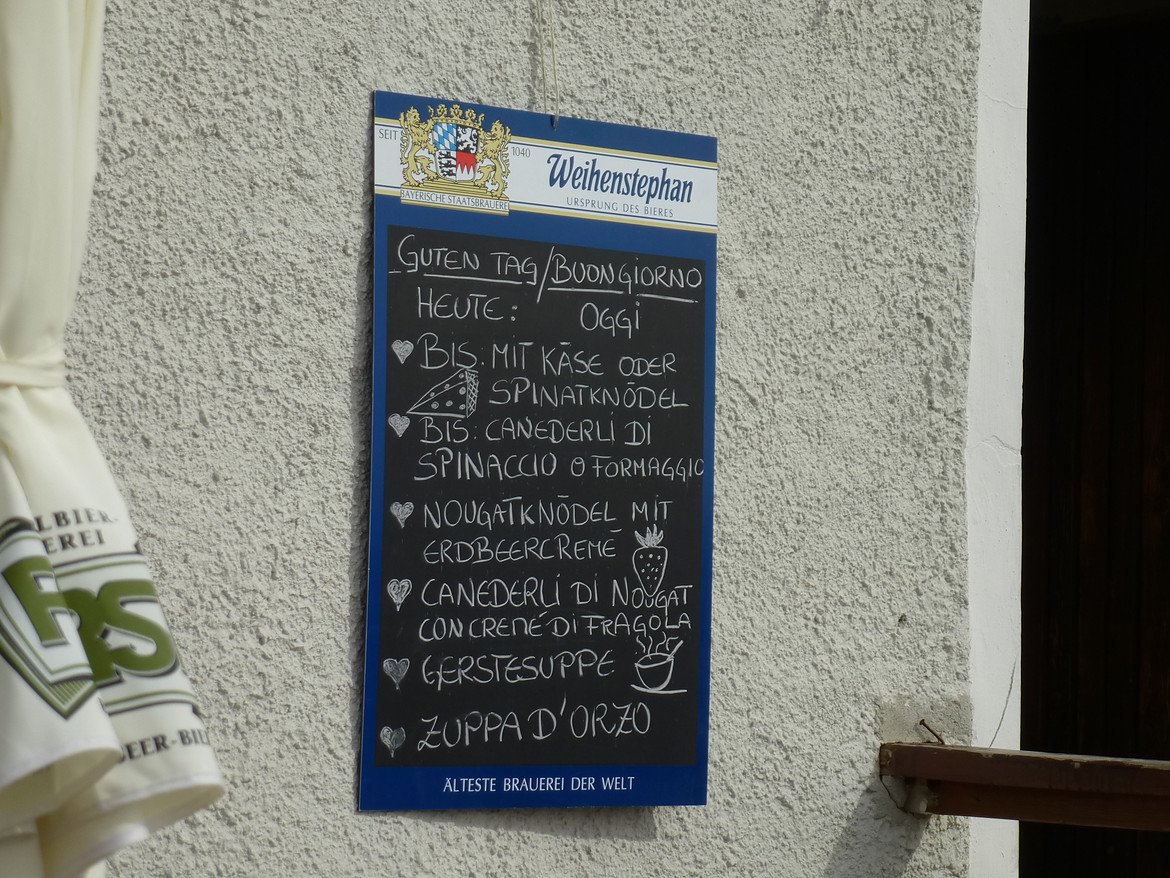 SEIT 1040
BAYERISCHE STAATSBRAUEREI
Weihenstephan
URSPRUNG DES BIERES
GUTEN TAG/BUONGIORNO
HEUTE: OGGI
BIS. MIT KÄSE ODER
SPINATKNÖDEL
BIS. CANEDERLI DI
SPINACCIO O FORMAGGIO
NOUGATKNÖDEL MIT
ERDBEERCREME
CANEDERLI DI NOUGAT
CON CREME DI FRAGOLA
GERSTESUPPE
ZUPPA D'ORZO
ÄLTESTE BRAUEREI DER WELT